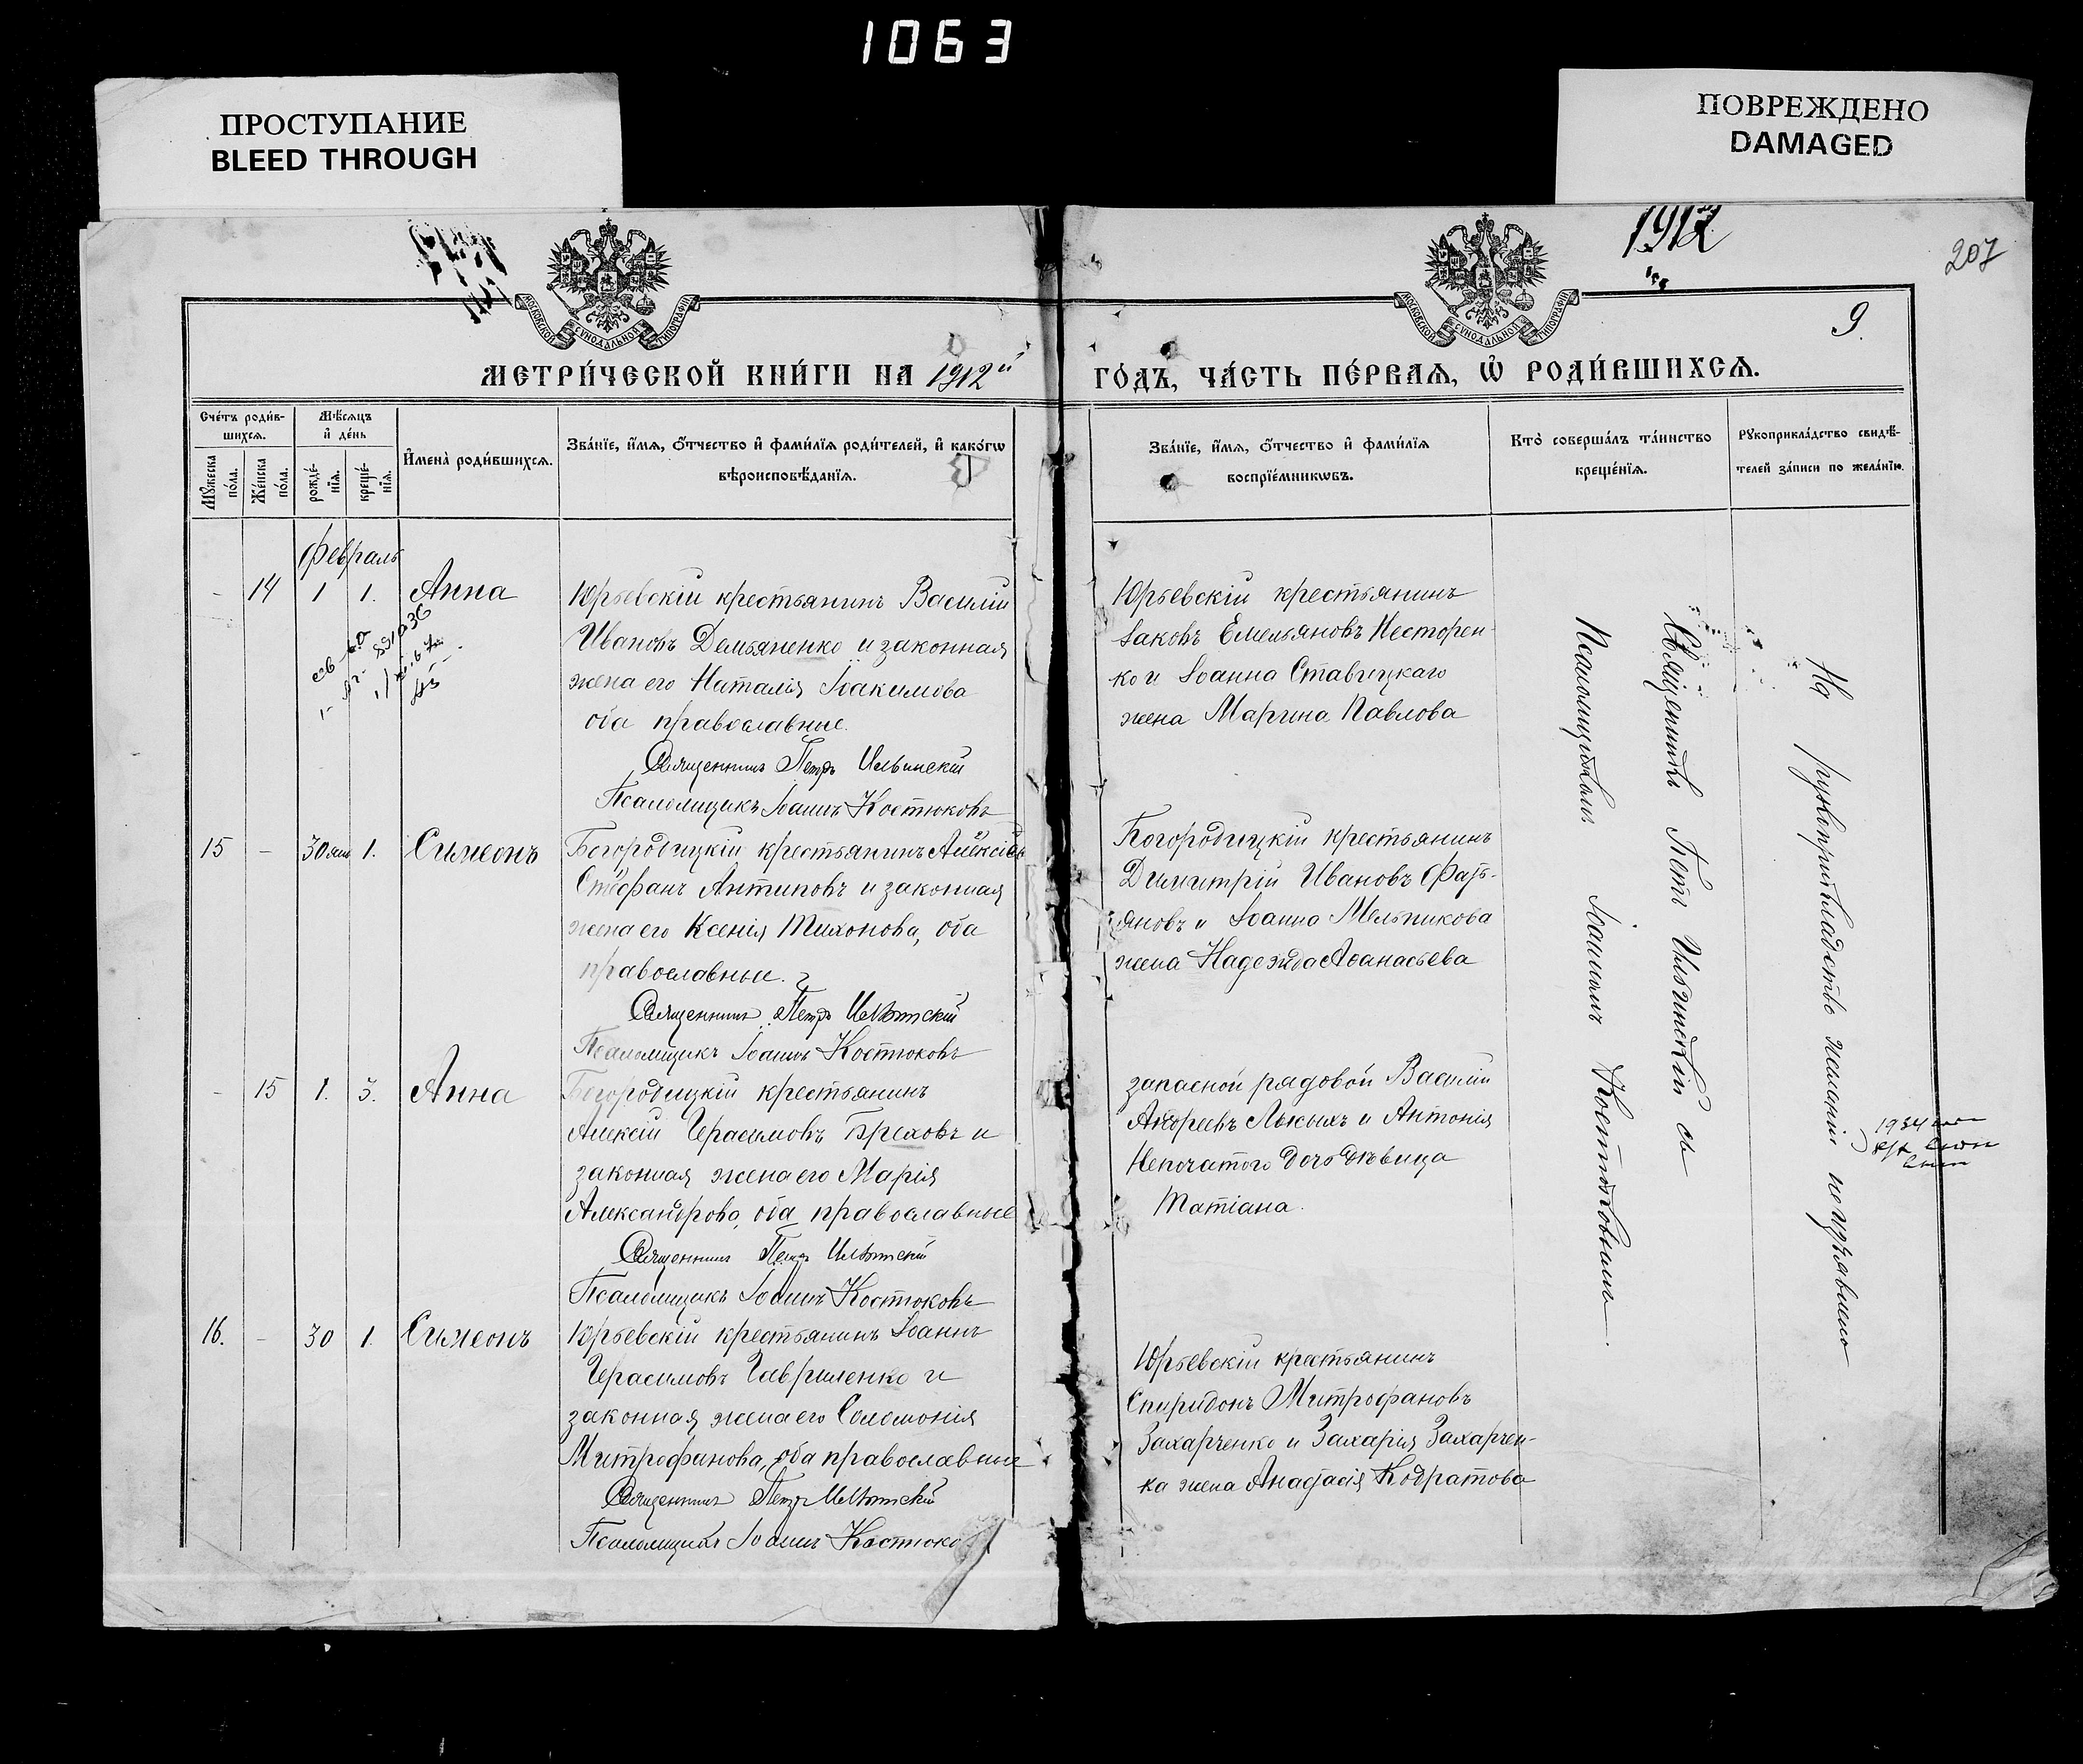 1063
ПРОСТУПАНИЕ
BLEED THROUGH
ПОВРЕЖДЕНО
DAMAGED
1912
207
9.
МОСКОВСКОЙ СѴНОДАЛЬНОЙ ТИПОГРАФІИ
МОСКОВСКОЙ СѴНОДАЛЬНОЙ ТИПОГРАФІИ
МЕТРИ́ЧЕСКОЙ КНИ́ГИ НА 1912й ГО́ДЪ, ЧА́СТЬ ПЕ́РВАЯ, Ѡ҆ РОДИ́ВШИХСЯ.
Сче́тъ роди́в-
шихся.
Мꙋ́жеска
по́ла.
Же́нска
по́ла.
Мѣ́сяцъ
и҆ де́нь
рожде́-
нїя.
креще́-
нїя.
И҆мена̀ роди́вшихся.
Зва́нїе, и҆́мя, ѻ҆́тчество и҆ фами́лїя роди́телей, и҆ како́гѡ
вѣроисповѣ́данїя.
Зва́нїе, и҆́мя, ѻ҆́тчество и҆ фами́лїя
воспрїе́мникѡвъ.
Кто̀ соверша́лъ та́инство
креще́нїя.
Рꙋкоприкла́дство свидѣ́-
телей за́писи по жела́нїю.
Февраль
- 14 1 1. Анна
Юрьевскій крестьянинъ Василій
Ивановъ Демьяненко и законная
жена его Наталія Іоакимова
оба православные.
Священникъ Петръ Ильинскій
Псаломщикъ Іоаннъ Костюковъ
Юрьевскій крестьянинъ
Іаковъ Емельяновъ Несторен-
ко и Іоанна Ставицкаго
жена Марина Павлова
15 - 30 янв 1. Симеонъ
Богородицкій крестьянинъ Алексій
Стефанъ Антиповъ и законная
жена его Ксенія Тихонова, оба
православные.
Священникъ Петръ Ильинскій
Псаломщикъ Іоаннъ Костюковъ
Богородицкій крестьянинъ
Димитрій Ивановъ
и Іоанна Мельникова
жена Надежда Аѳанасьева
- 15 1. 3. Анна
Богородицкій крестьянинъ
Алексій Герасимовъ Бреховъ и
законная жена его Марія
Александрова, оба православные
Священникъ Петръ Ильинскій
Псаломщикъ Іоаннъ Костюковъ
запасной рядовой Василій
Андреевъ Лысыхъ и Антонія
Непочатого дочь дѣвица
Татіана.
16. - 30 1. Симеонъ
Юрьевскій крестьянинъ Іоаннъ
Герасимовъ Гавриленко и
законная жена его Соломонія
Митрофанова, оба православные
Священникъ Петръ Ильинскій
Псаломщикъ Іоаннъ Костюковъ
Юрьевскій крестьянинъ
Спиридонъ Митрофановъ
Захарченко и Захарія Захарчен-
ка жена Анастасія Кодратова
Священникъ Петръ Ильинскій съ
Псаломщикомъ Іоанномъ Костюковымъ.
На рукоприкладство желанія не изъявлено